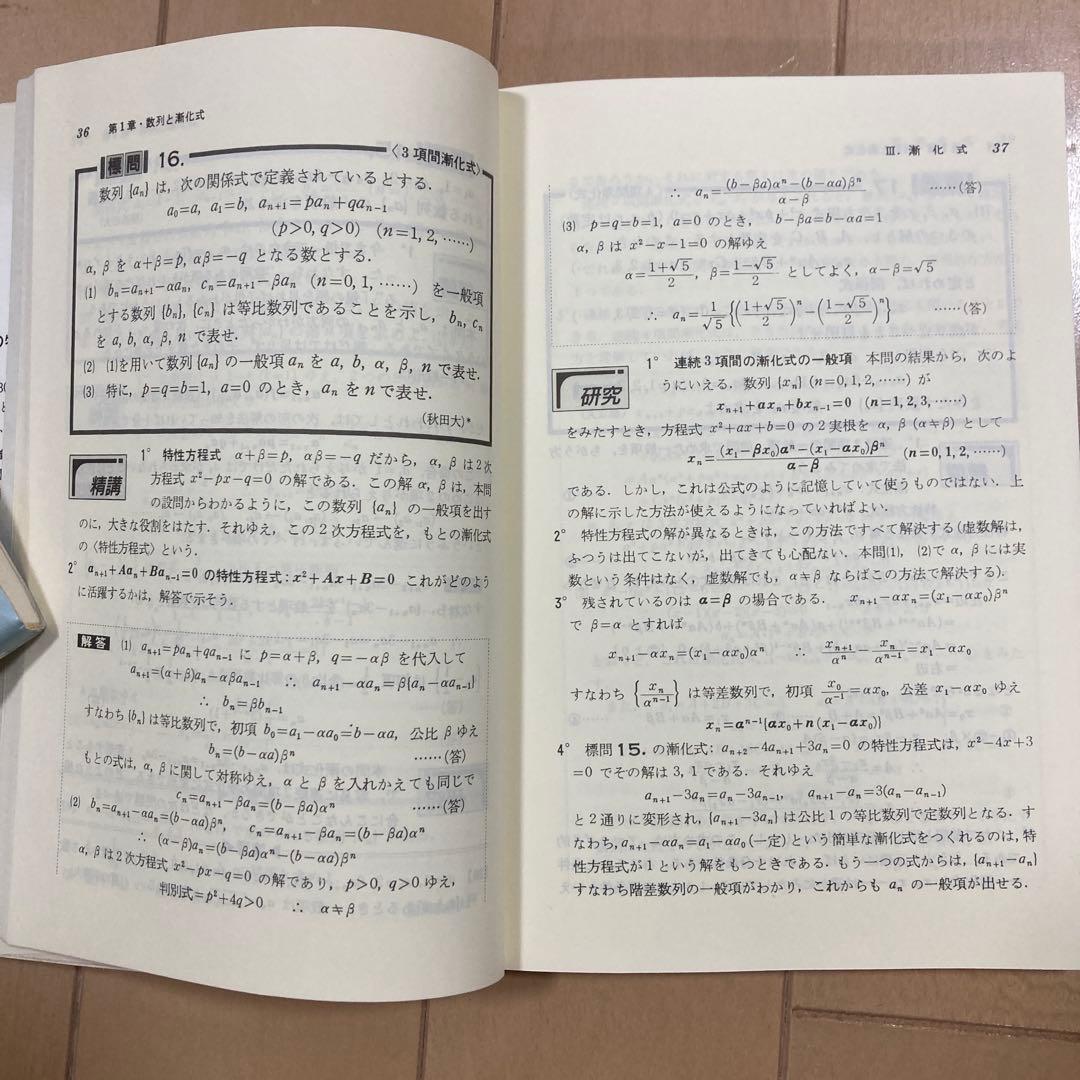 36 第1章・数列と漸化式
標問 16. 〈3項間漸化式〉
数列 {aₙ} は，次の関係式で定義されているとする．
a₀=a, a₁=b, aₙ₊₁=paₙ+qaₙ₋₁
(p>0, q>0) (n=1, 2, ……)
α, β を α+β=p, αβ=−q となる数とする．
(1) bₙ=aₙ₊₁−αaₙ, cₙ=aₙ₊₁−βaₙ (n=0, 1, ……) を一般項
とする数列 {bₙ}, {cₙ} は等比数列であることを示し，bₙ, cₙ
を a, b, α, β, n で表せ．
(2) (1)を用いて数列 {aₙ} の一般項 aₙ を a, b, α, β, n で表せ．
(3) 特に，p=q=b=1, a=0 のとき，aₙ を n で表せ．
(秋田大)*
精講
1° 特性方程式 α+β=p, αβ=−q だから，α, β は2次
方程式 x²−px−q=0 の解である．この解 α, β は，本問
の設問からわかるように，この数列 {aₙ} の一般項を出す
のに，大きな役割をはたす．それゆえ，この2次方程式を，もとの漸化式
の〈特性方程式〉という．
2° aₙ₊₁+Aaₙ+Baₙ₋₁=0 の特性方程式：x²+Ax+B=0 これがどのよう
に活躍するかは，解答で示そう．
解答 (1) aₙ₊₁=paₙ+qaₙ₋₁ に p=α+β, q=−αβ を代入して
aₙ₊₁=(α+β)aₙ−αβaₙ₋₁ ∴ aₙ₊₁−αaₙ=β{aₙ−αaₙ₋₁}
∴ bₙ=βbₙ₋₁
すなわち {bₙ} は等比数列で，初項 b₀=a₁−αa₀=b−αa, 公比 β ゆえ
bₙ=(b−αa)βⁿ ……(答)
もとの式は，α, β に関して対称ゆえ，α と β を入れかえても同じで
cₙ=aₙ₊₁−βaₙ=(b−βa)αⁿ ……(答)
(2) bₙ=aₙ₊₁−αaₙ=(b−αa)βⁿ, cₙ=aₙ₊₁−βaₙ=(b−βa)αⁿ
∴ (α−β)aₙ=(b−βa)αⁿ−(b−αa)βⁿ
α, β は2次方程式 x²−px−q=0 の解であり，p>0, q>0 ゆえ，
判別式=p²+4q>0 ∴ α≠β
III. 漸化式 37
∴ aₙ=((b−βa)αⁿ−(b−αa)βⁿ)/(α−β) ……(答)
(3) p=q=b=1, a=0 のとき， b−βa=b−αa=1
α, β は x²−x−1=0 の解ゆえ
α=(1+√5)/2, β=(1−√5)/2 としてよく，α−β=√5
∴ aₙ=1/√5{((1+√5)/2)ⁿ−((1−√5)/2)ⁿ} ……(答)
研究
1° 連続3項間の漸化式の一般項 本問の結果から，次のよ
うにいえる．数列 {xₙ} (n=0, 1, 2, ……) が
xₙ₊₁+axₙ+bxₙ₋₁=0 (n=1, 2, 3, ……)
をみたすとき，方程式 x²+ax+b=0 の2実根を α, β (α≠β) として
xₙ=((x₁−βx₀)αⁿ−(x₁−αx₀)βⁿ)/(α−β) (n=0, 1, 2, ……)
である．しかし，これは公式のように記憶していて使うものではない．上
の解に示した方法が使えるようになっていればよい．
2° 特性方程式の解が異なるときは，この方法ですべて解決する(虚数解は，
ふつうは出てこないが，出てきても心配ない．本問(1), (2)で α, β には実
数という条件はなく，虚数解でも，α≠β ならばこの方法で解決する)．
3° 残されているのは α=β の場合である． xₙ₊₁−αxₙ=(x₁−αx₀)βⁿ
で β=α とすれば
xₙ₊₁−αxₙ=(x₁−αx₀)αⁿ ∴ xₙ₊₁/αⁿ−xₙ/αⁿ⁻¹=x₁−αx₀
すなわち {xₙ/αⁿ⁻¹} は等差数列で，初項 x₀/α⁻¹=αx₀, 公差 x₁−αx₀ ゆえ
xₙ=αⁿ⁻¹{αx₀+n(x₁−αx₀)}
4° 標問15. の漸化式：aₙ₊₂−4aₙ₊₁+3aₙ=0 の特性方程式は，x²−4x+3
=0 でその解は 3, 1 である．それゆえ
aₙ₊₁−3aₙ=aₙ−3aₙ₋₁, aₙ₊₁−aₙ=3(aₙ−aₙ₋₁)
と2通りに変形され，{aₙ₊₁−3aₙ} は公比1の等比数列で定数列となる．す
なわち，aₙ₊₁−αaₙ=a₁−αa₀(一定) という簡単な漸化式をつくれるのは，特
性方程式が1という解をもつときである．もう一つの式からは，{aₙ₊₁−aₙ}
すなわち階差数列の一般項がわかり，これからも aₙ の一般項が出せる．